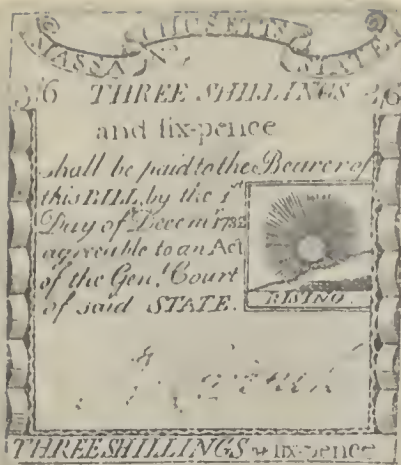 MASSACHUSETTS STATE
No.
3/6 THREE SHILLINGS 3/6
and ſix-pence
shall be paid to the Bearer of
this BILL, by the 1st
Day of Decemr. 1782
agreeable to an Act
of the Genl. Court
of said STATE.
RISING
THREE SHILLINGS & ſix-pence